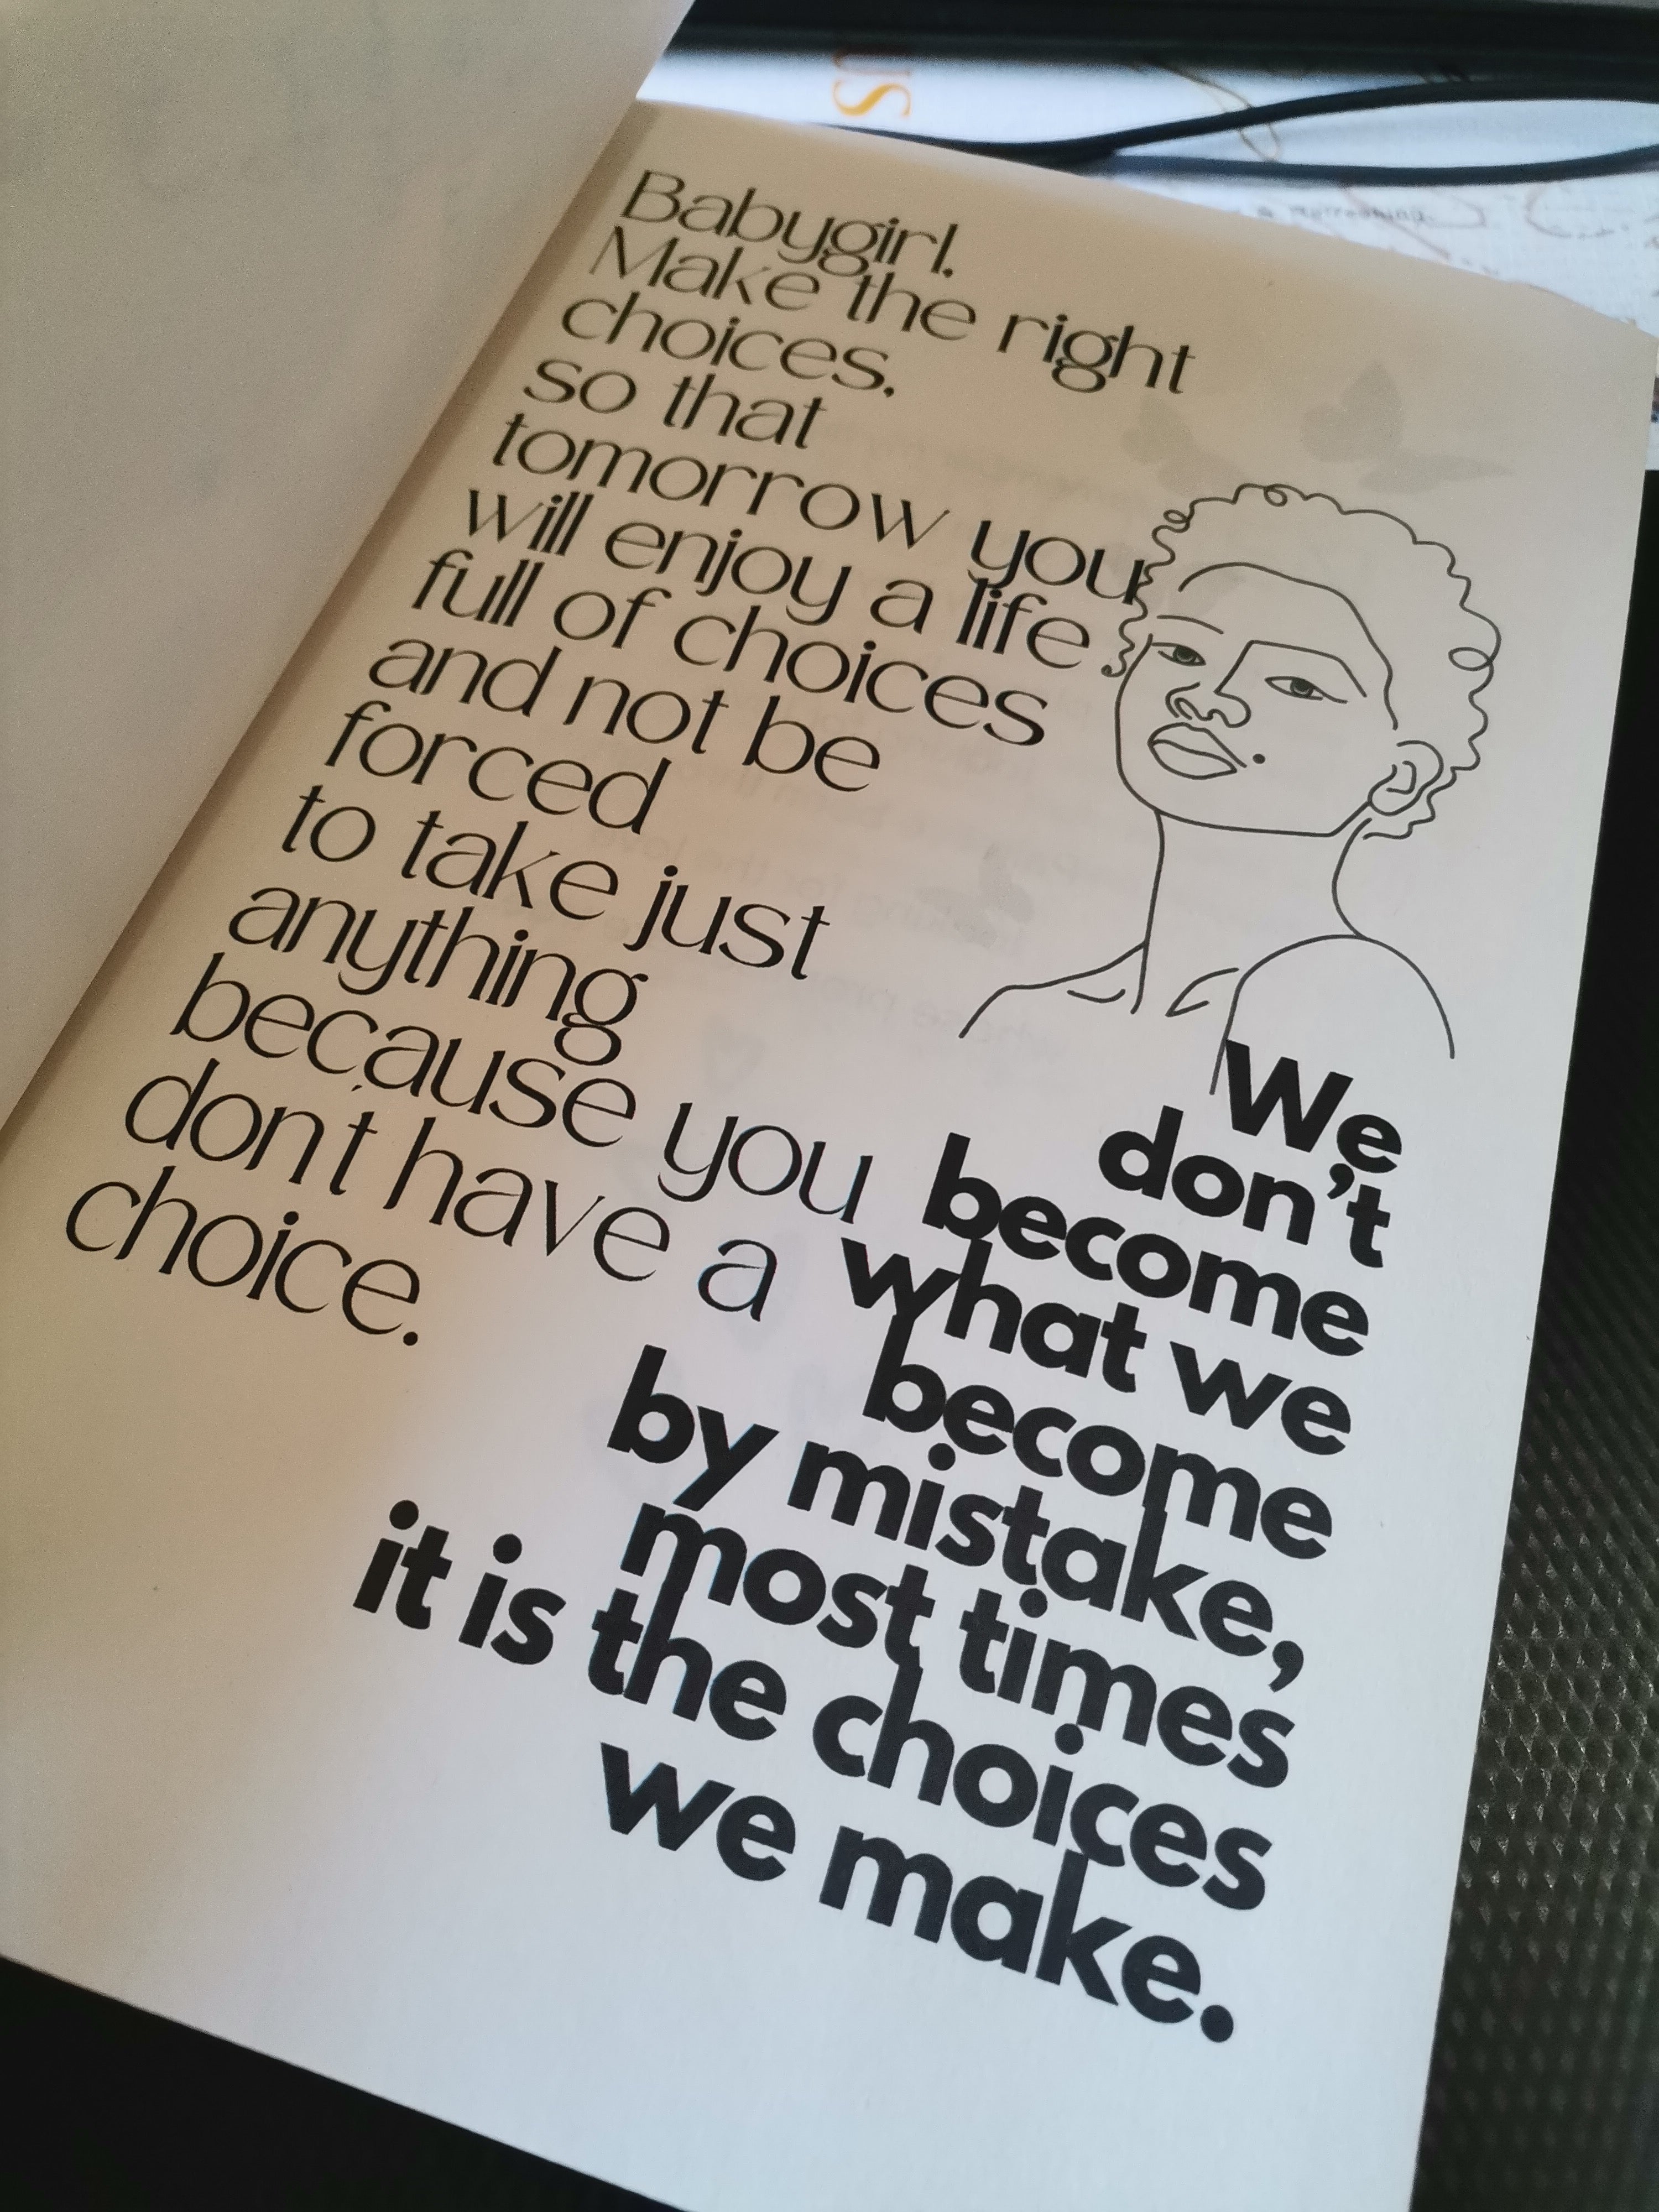 US
Babygirl,
Make the right
choices,
so that
tomorrow you
will enjoy a life
full of choices
and not be
forced
to take just
anything
because you
don't have a
choice.
We
don't
become
what we
become
by mistake,
most times
it is the choices
we make.